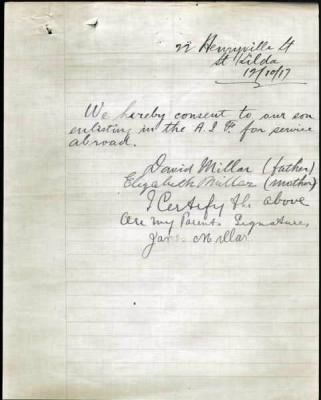 22 Henryville St
St Kilda
12/10/17
We hereby consent to our son
enlisting in the A.I.F. for service
abroad.
David Millar (father)
Elizabeth Millar (mother)
I Certify the above
are my Parents Signatures,
Millar